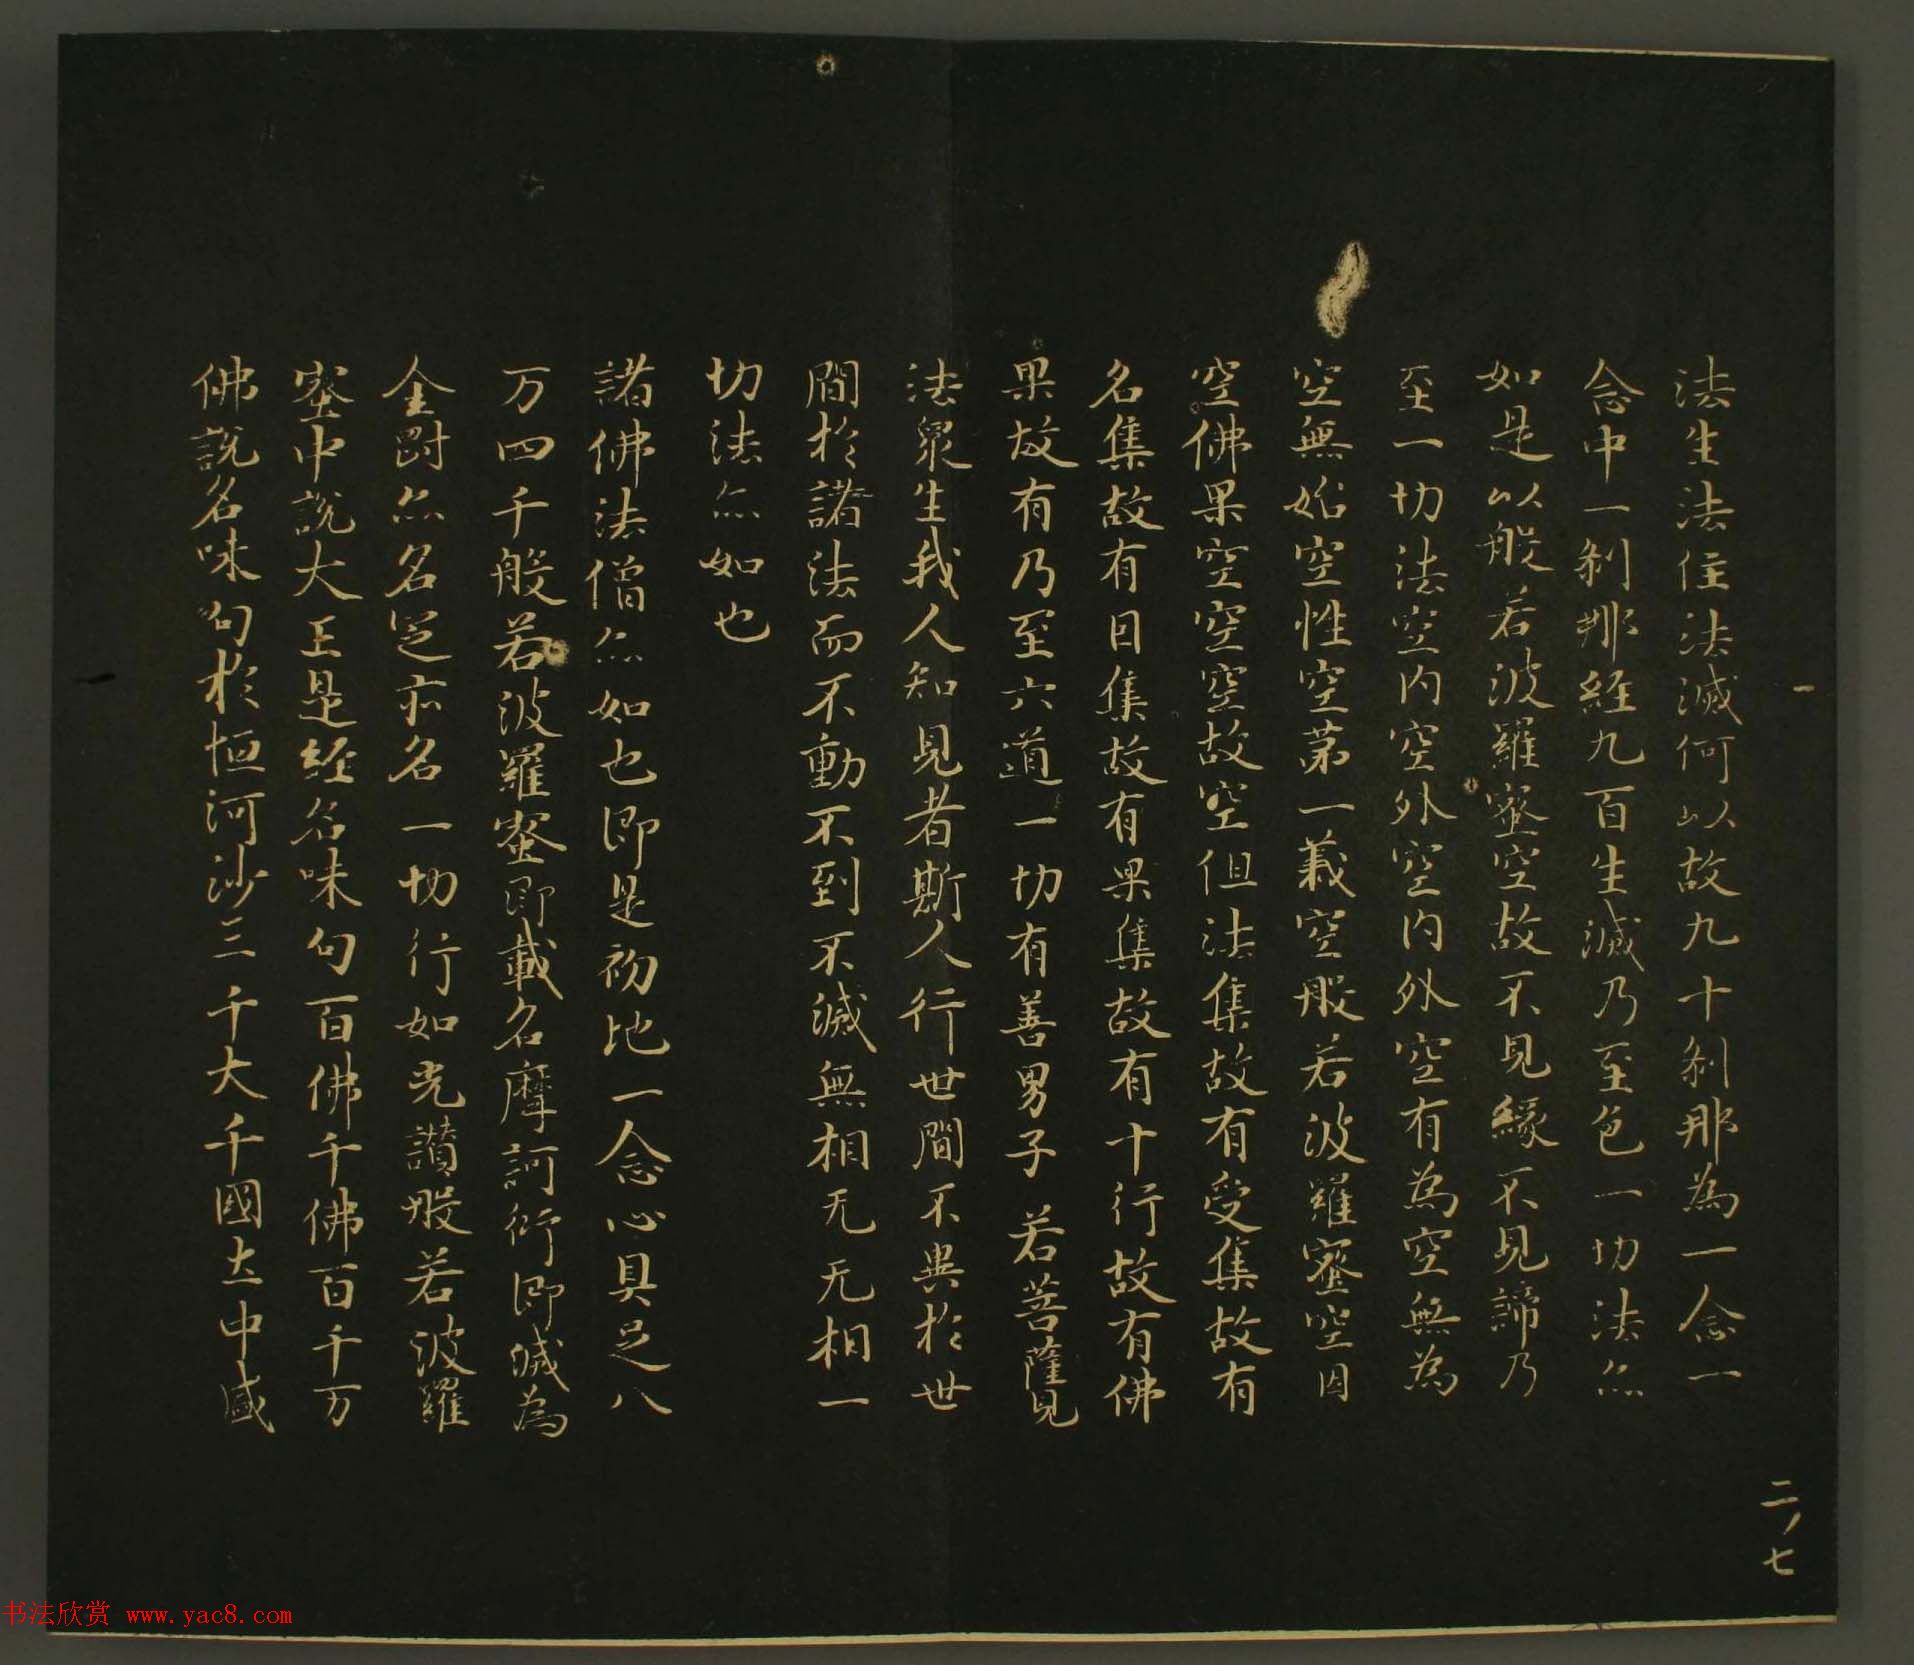 法生法住法滅何以故九十刹那為一念一
念中一刹那經九百生滅乃至色一切法亦
如是以般若波羅蜜空故不見緣不見諦乃
至一切法空內空外空內外空有為空無為
空無始空性空第一義空般若波羅蜜空因
空佛果空空空故空但法集故有受集故有
名集故有因集故有果集故有十行故有佛
果故有乃至六道一切有善男子若菩薩見
法眾生我人知見者斯人行世間不異於世
間於諸法而不動不到不滅無相无无相一
切法亦如也
諸佛法僧亦如也即是初地一念心具足八
万四千般若波羅蜜即載名摩訶衍即滅為
金剛亦名定亦名一切行如光讚般若波羅
蜜中說大王是經名味句百佛千佛百千万
佛說名味句於恒河沙三千大千國土中盛
二ノ七
书法欣赏 www.yac8.com